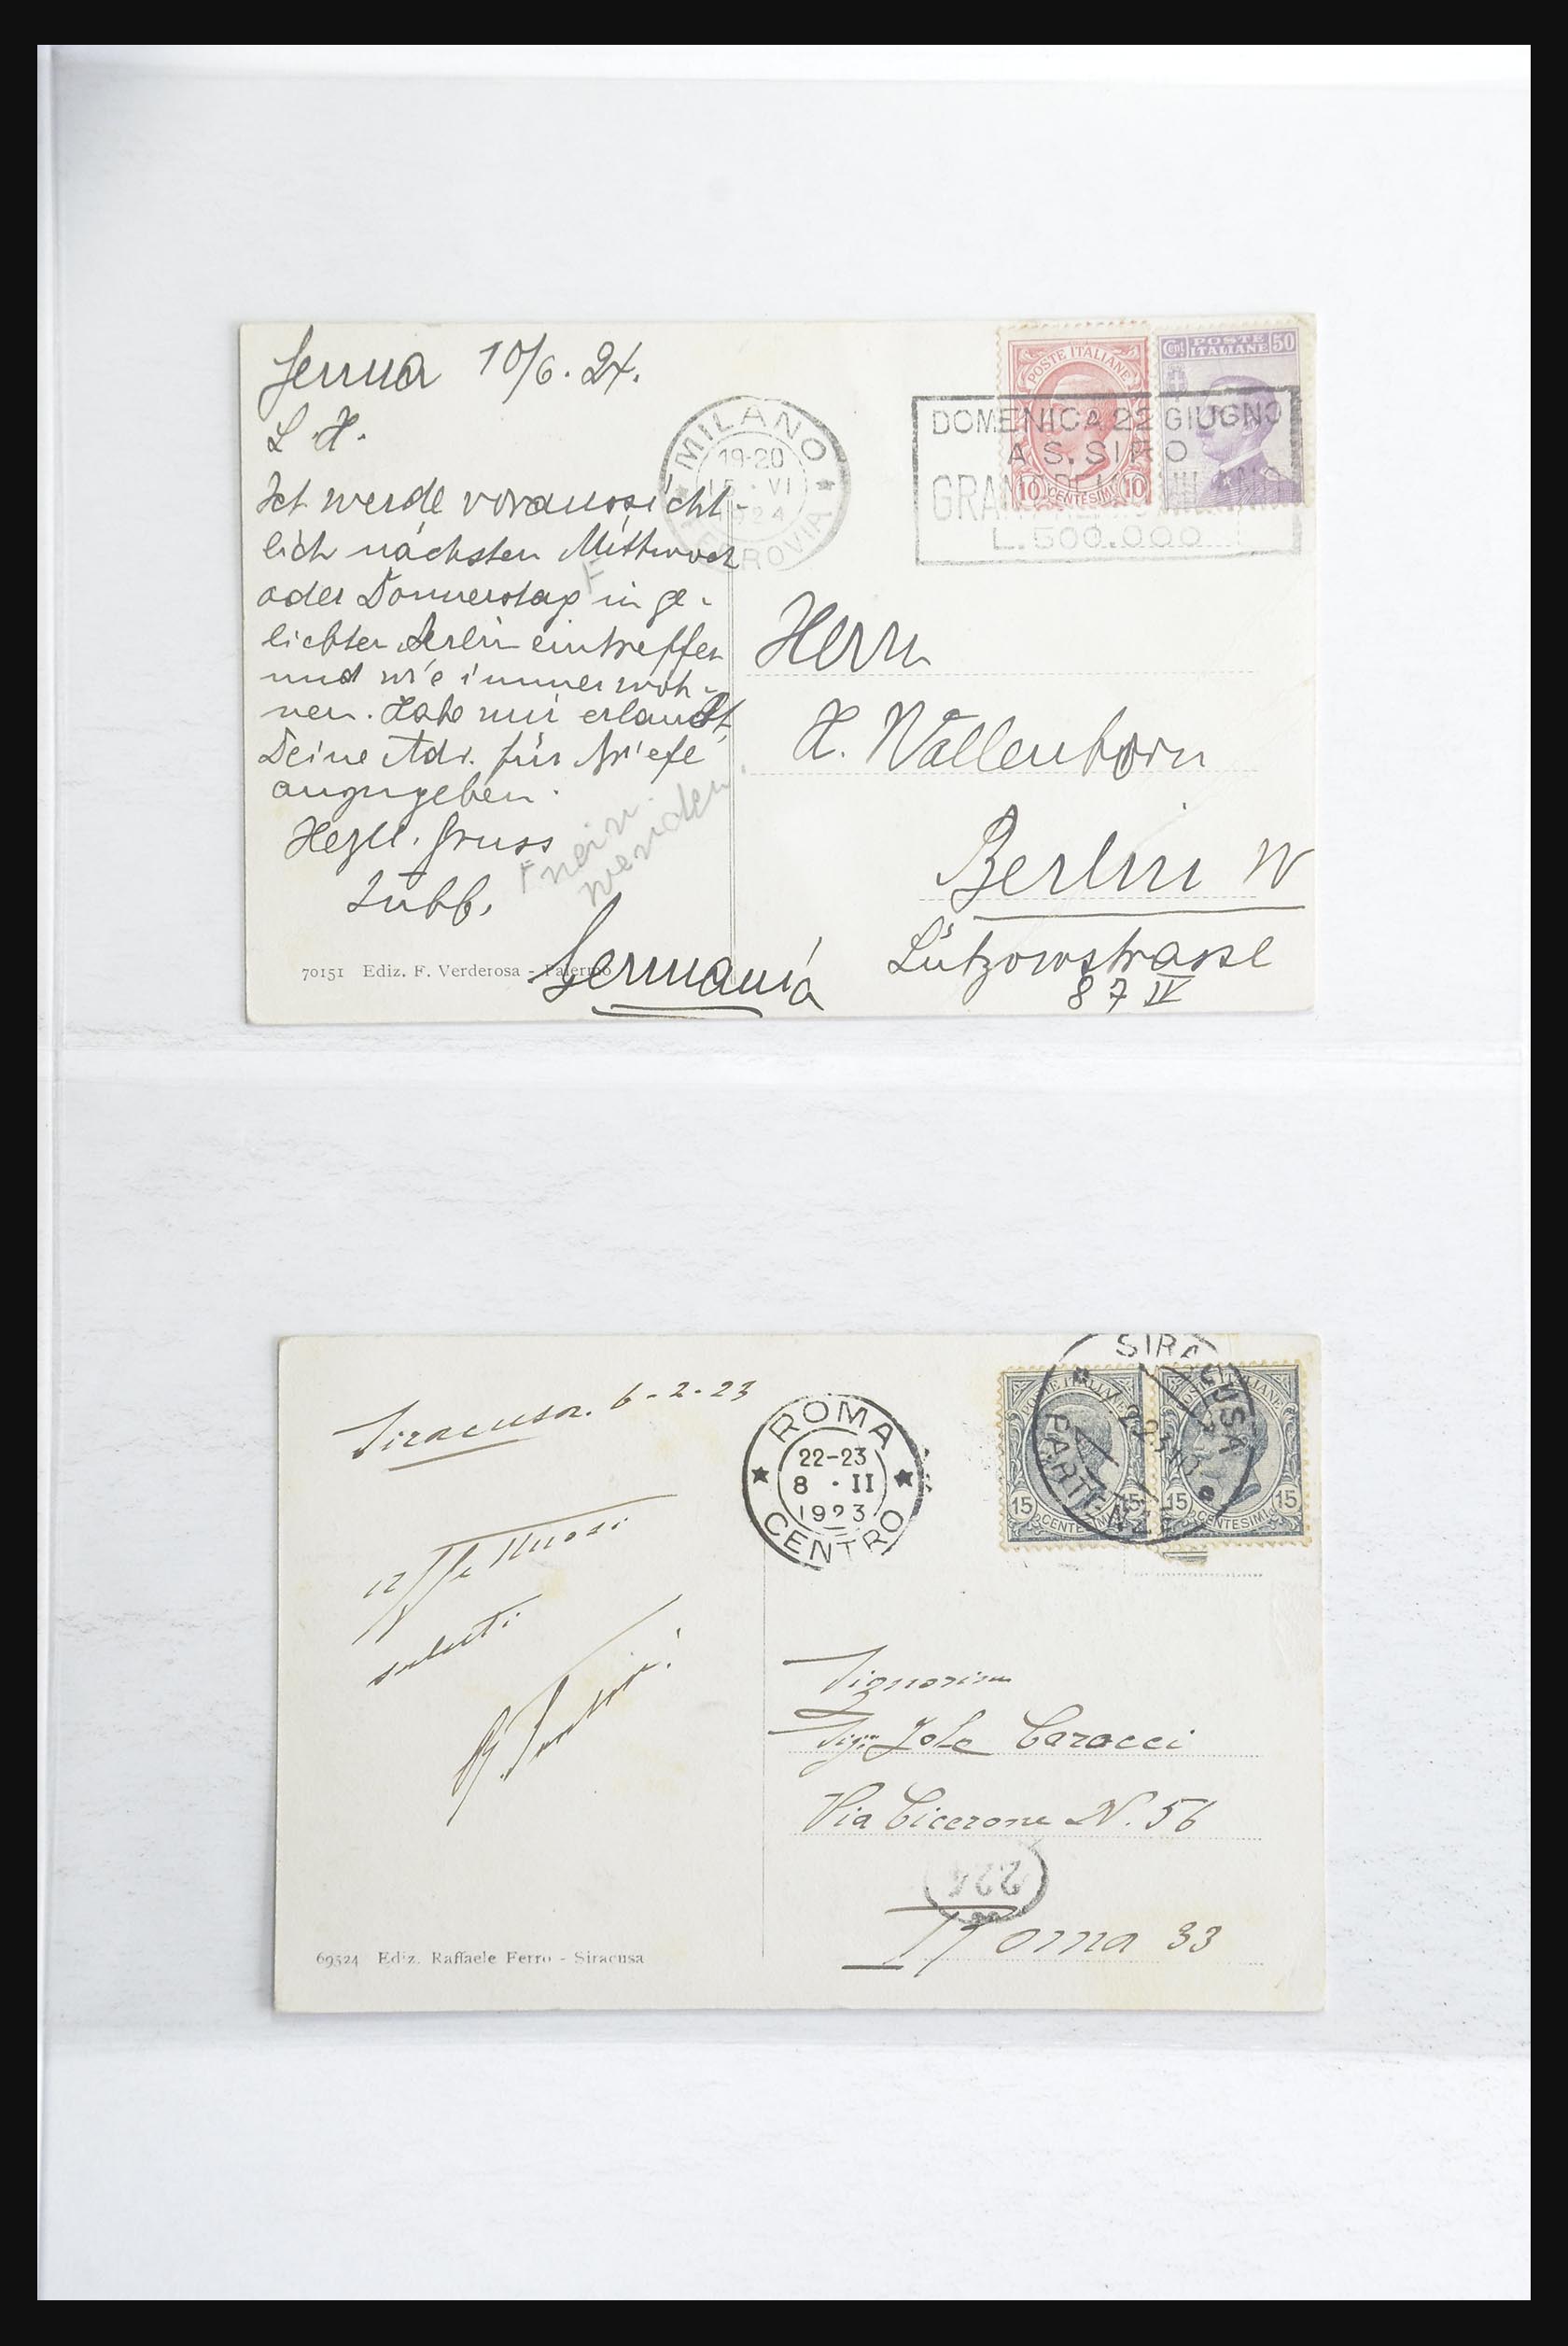 Genua 10/6. 24.
L. H.
Ich werde voraussicht-
lich nächsten Mittwoch
oder Donnerstag in ge-
liebten Berlin eintreffen
und wie immer woh-
nen. Habe mir erlaubt,
Deine Adr. für Briefe
anzugeben.
Herzl. Gruss
Lubb.
nein
70151 Ediz. F. Verderosa - Palermo
MILANO
19-20
15 · VI
1924
FERROVIA
POSTE ITALIANE
10 CENTESIMI 10
Cent POSTE ITALIANE 50
DOMENICA 22 GIUGNO
A S. SIRO
GRAN
L. 500.000
Herrn
H. Wallenborn
Berlin W
Lützowstrasse
87 IV
Germania
Siracusa. 6-2-23
affettuosi
saluti
69524 Ediz. Raffaele Ferro - Siracusa
ROMA
22-23
8 · II
1923
CENTRO
POSTE ITALIANE
15 CENTESIMI 15
POSTE ITALIANE
15 CENTESIMI 15
SIRACUSA
PARTENZE
Signorina
Sig.na Jole Caracci
Via Cicerone N. 56
224
Roma 33